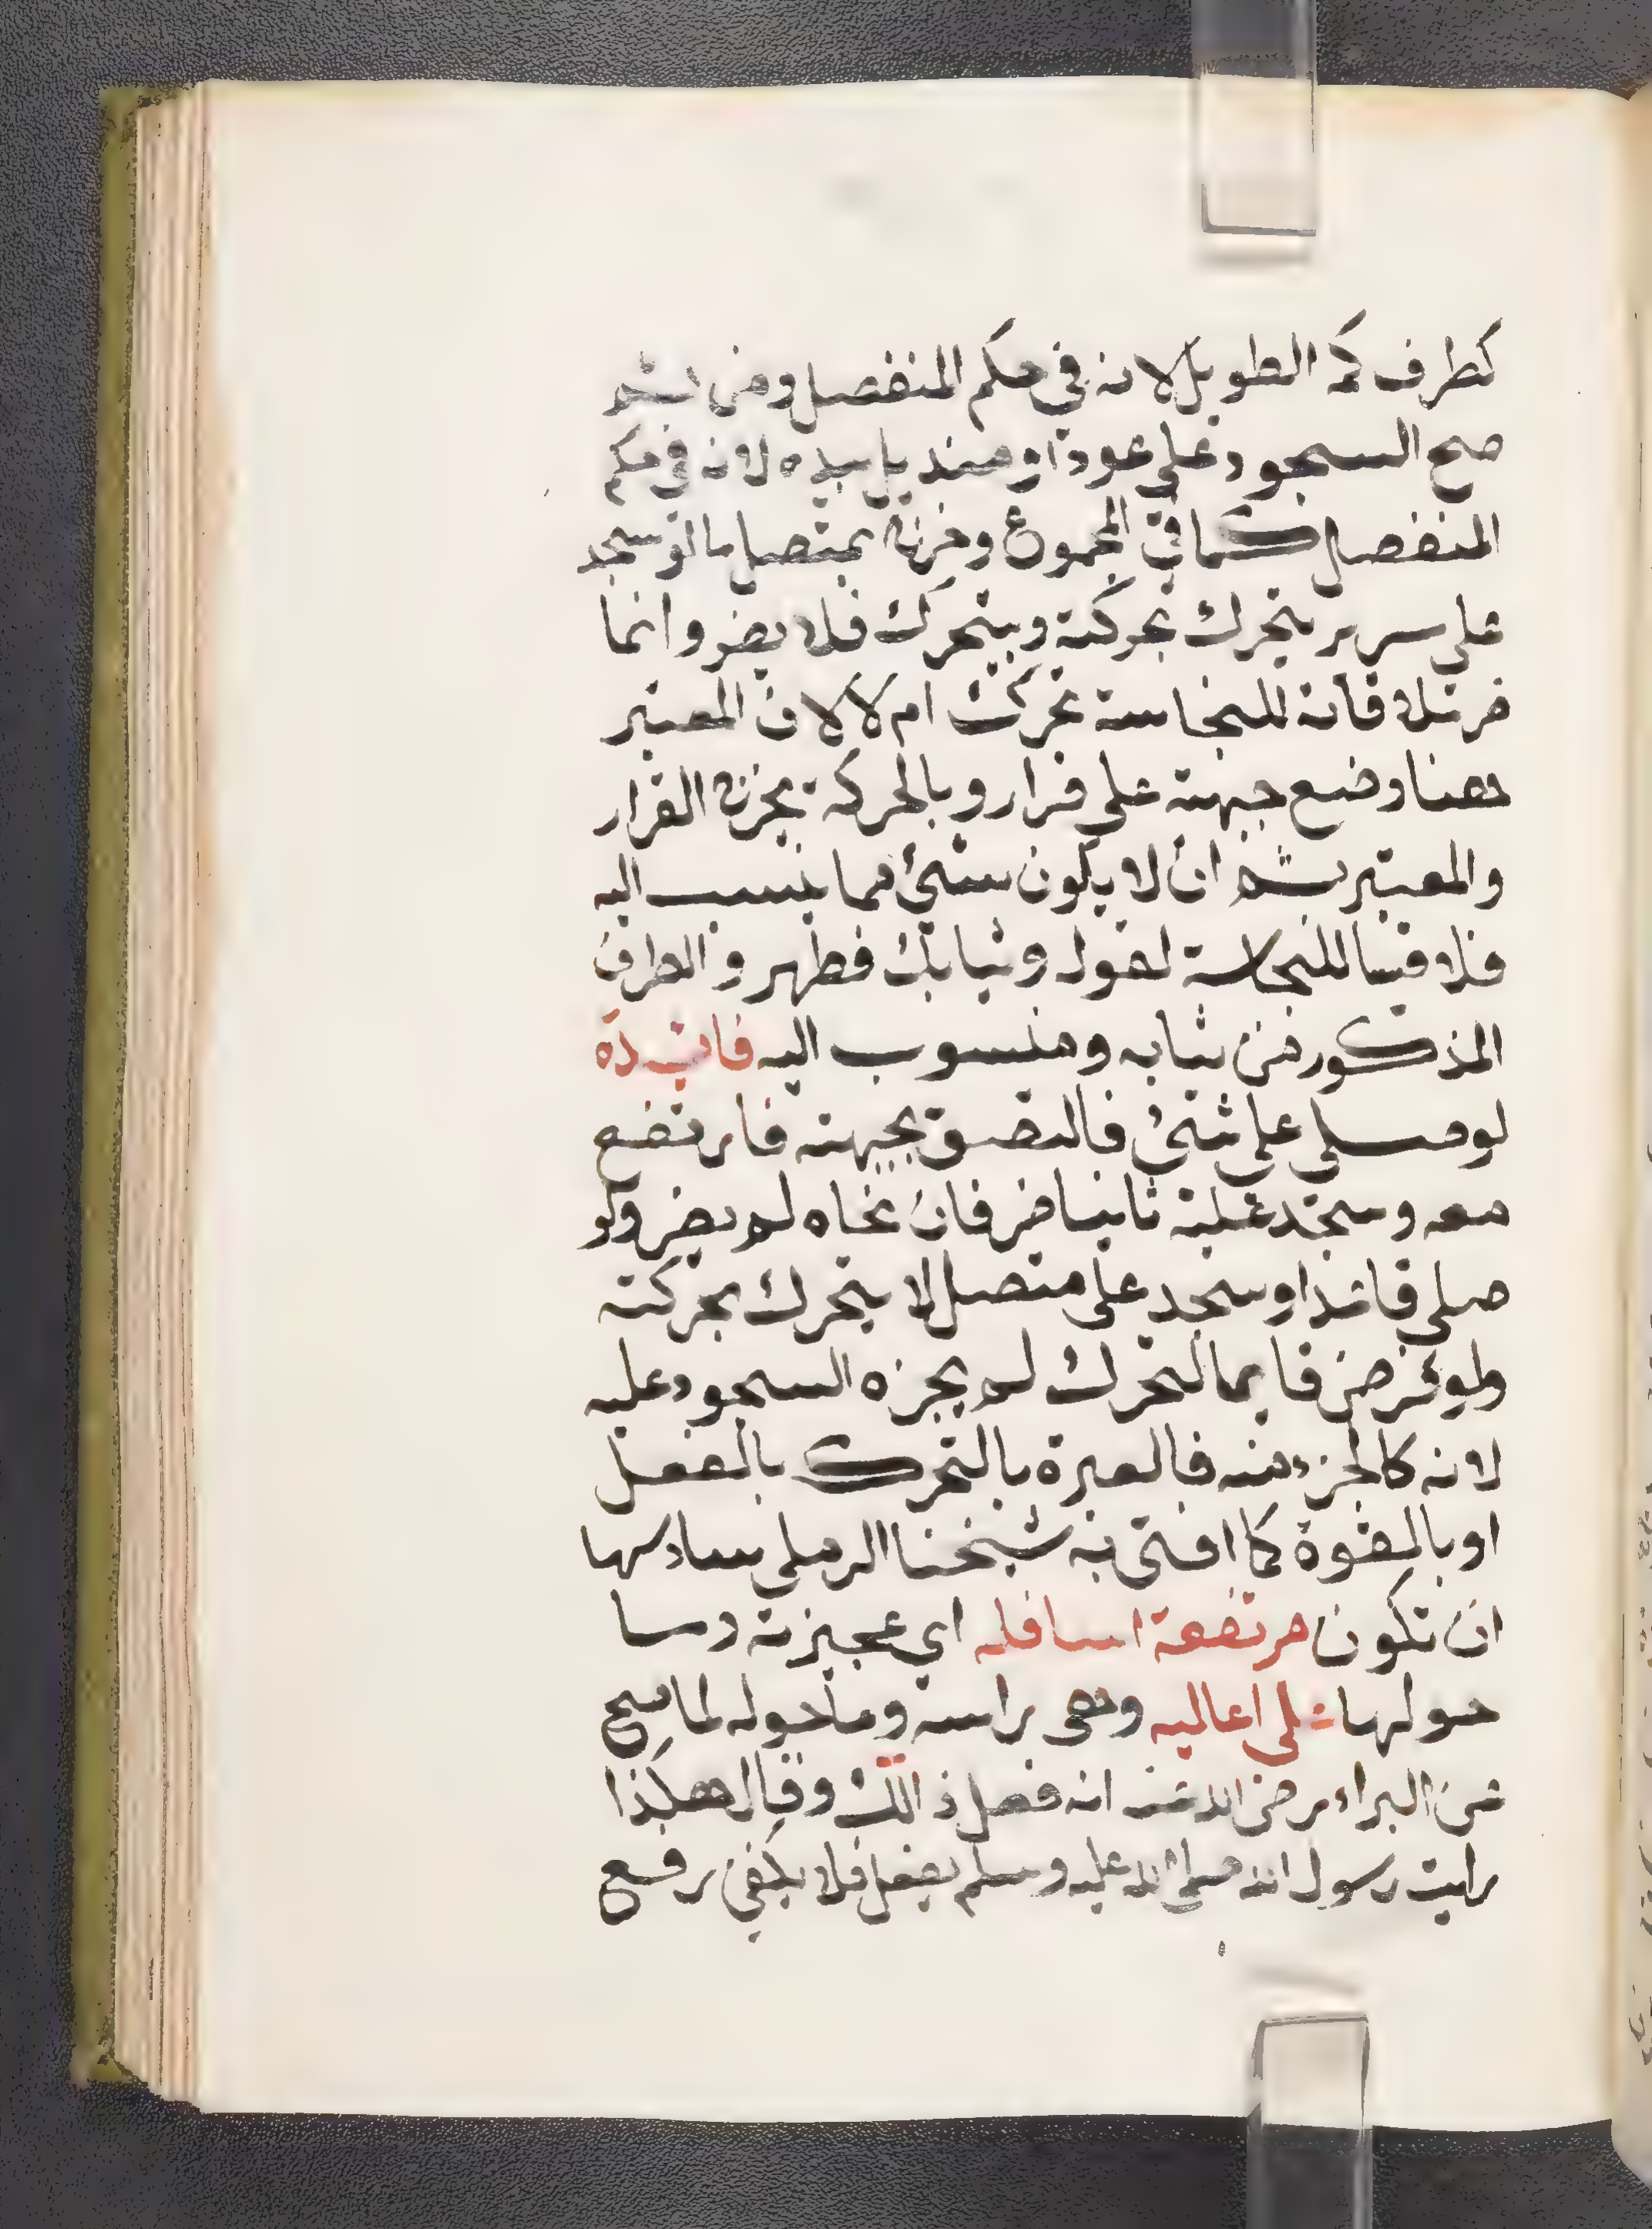 كطرف كمه الطويل لانه في حكم المنفصل ومن ثم
صح السجود على عود او منديل بيده لانه في حكم
المنفصل كما في المجموع وخرج بمتصل ما لو سجد
على سرير يتحرك بحركته ويتحرك فلا يضر وانما
ضر ملاقاته للنجاسة تحركت ام لا لان المعتبر
هنا وضع جبهته على قرار وبالحركة يخرج القرار
والمعتبر ثم ان لا يكون شئ مما ينسب اليه
فلاقيا للنجاسة لقوله وثيابك فطهر والطرف
المذكور من ثيابه ومنسوب اليه فائيدة
لو صلى على شئ فالتصق بجبهته فارتفع
معه وسجد عليه ثانيا ضر فان نحاه لم يضر ولو
صلى قاعدا وسجد على متصل لا يتحرك بحركته
ولو فرض قايما لتحرك لم يجزه السجود عليه
لانه كالجزء منه فالعبرة بالتحرك بالفعل
او بالقوة كما افتى به شيخنا الرملي سادسها
ان تكون مرتفعة اسافله اي عجيزته وما
حولها على اعاليه وهى راسه وما حوله لما صح
عن البراء رضى الله عنه انه فعل ذالك وقال هكذا
رايت رسول الله صلى الله عليه وسلم يفعل فلا يكفي رفع